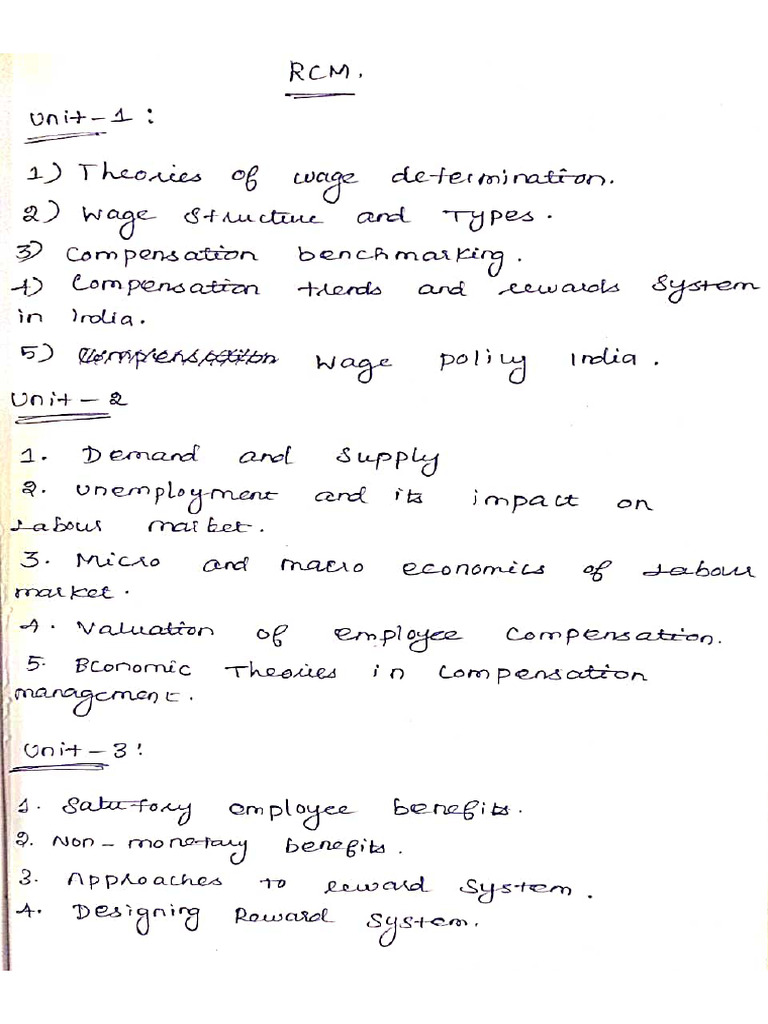 RCM.
Unit-1:
1) Theories of wage determination.
2) Wage Structure and Types.
3) Compensation benchmarking.
4) Compensation trends and rewards System
in India.
5) Compensation Wage policy India.
Unit-2
1. Demand and Supply
2. Unemployment and its impact on
Labour market.
3. Micro and macro economics of Labour
market.
4. Valuation of employee Compensation.
5. Economic Theories in Compensation
management.
Unit-3:
1. Satutory employee benefits.
2. Non-monetary benefits.
3. Approaches to reward System.
4. Designing Roward System.